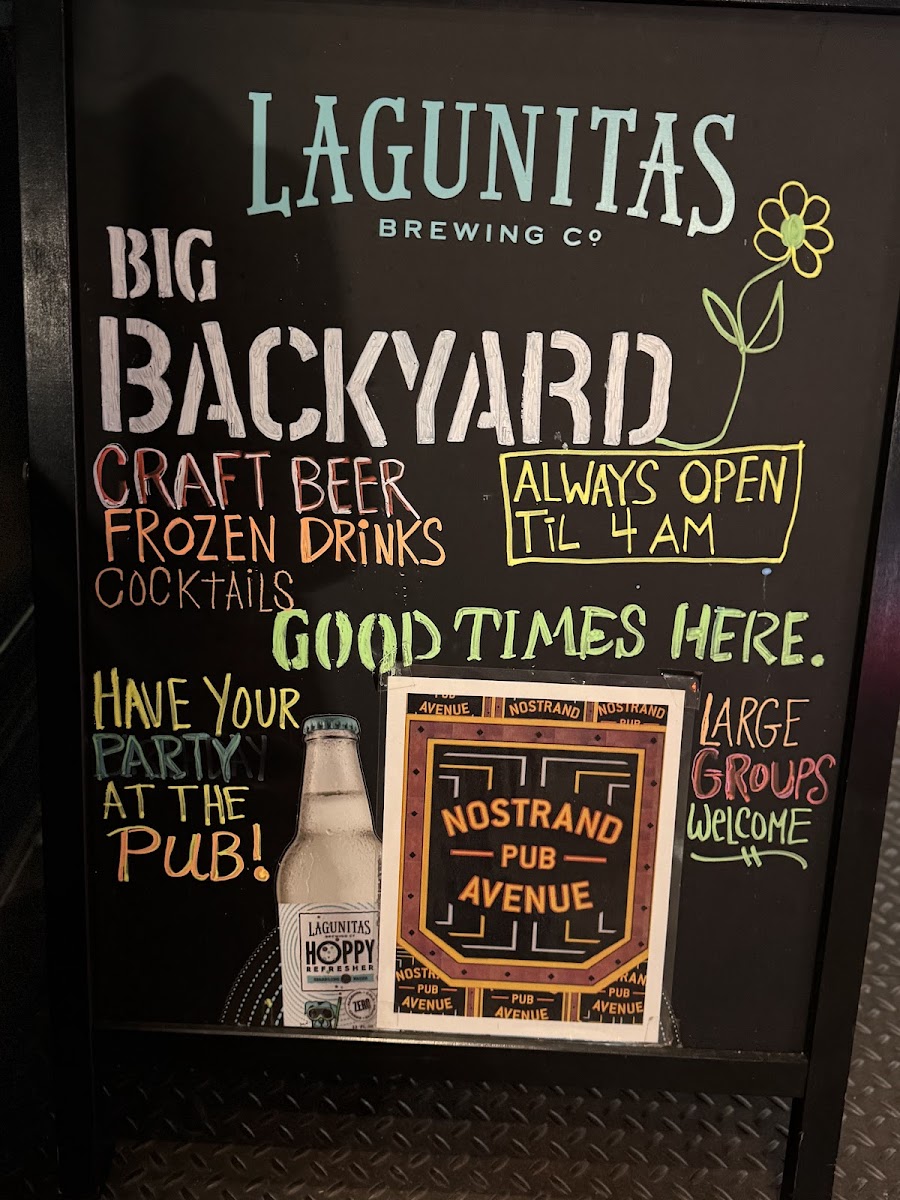 LAGUNITAS
BREWING Cº
BIG
BACKYARD
CRAFT BEER
FROZEN DRiNKS
COCKTAiLS
ALWAYS OPEN
TiL 4 AM
GOOD TIMES HERE.
HAVE YOUR
PARTY
AT THE
PUB!
LARGE
GROUPS
WELCOME
LAGUNITAS
HOPPY
REFRESHER
ZERO
PUB
AVENUE
NOSTRAND
NOSTRAND
PUB
NOSTRAND
PUB
AVENUE
NOSTR
PUB
AVENUE
PUB
AVENUE
RAN
PUB
AVENUE